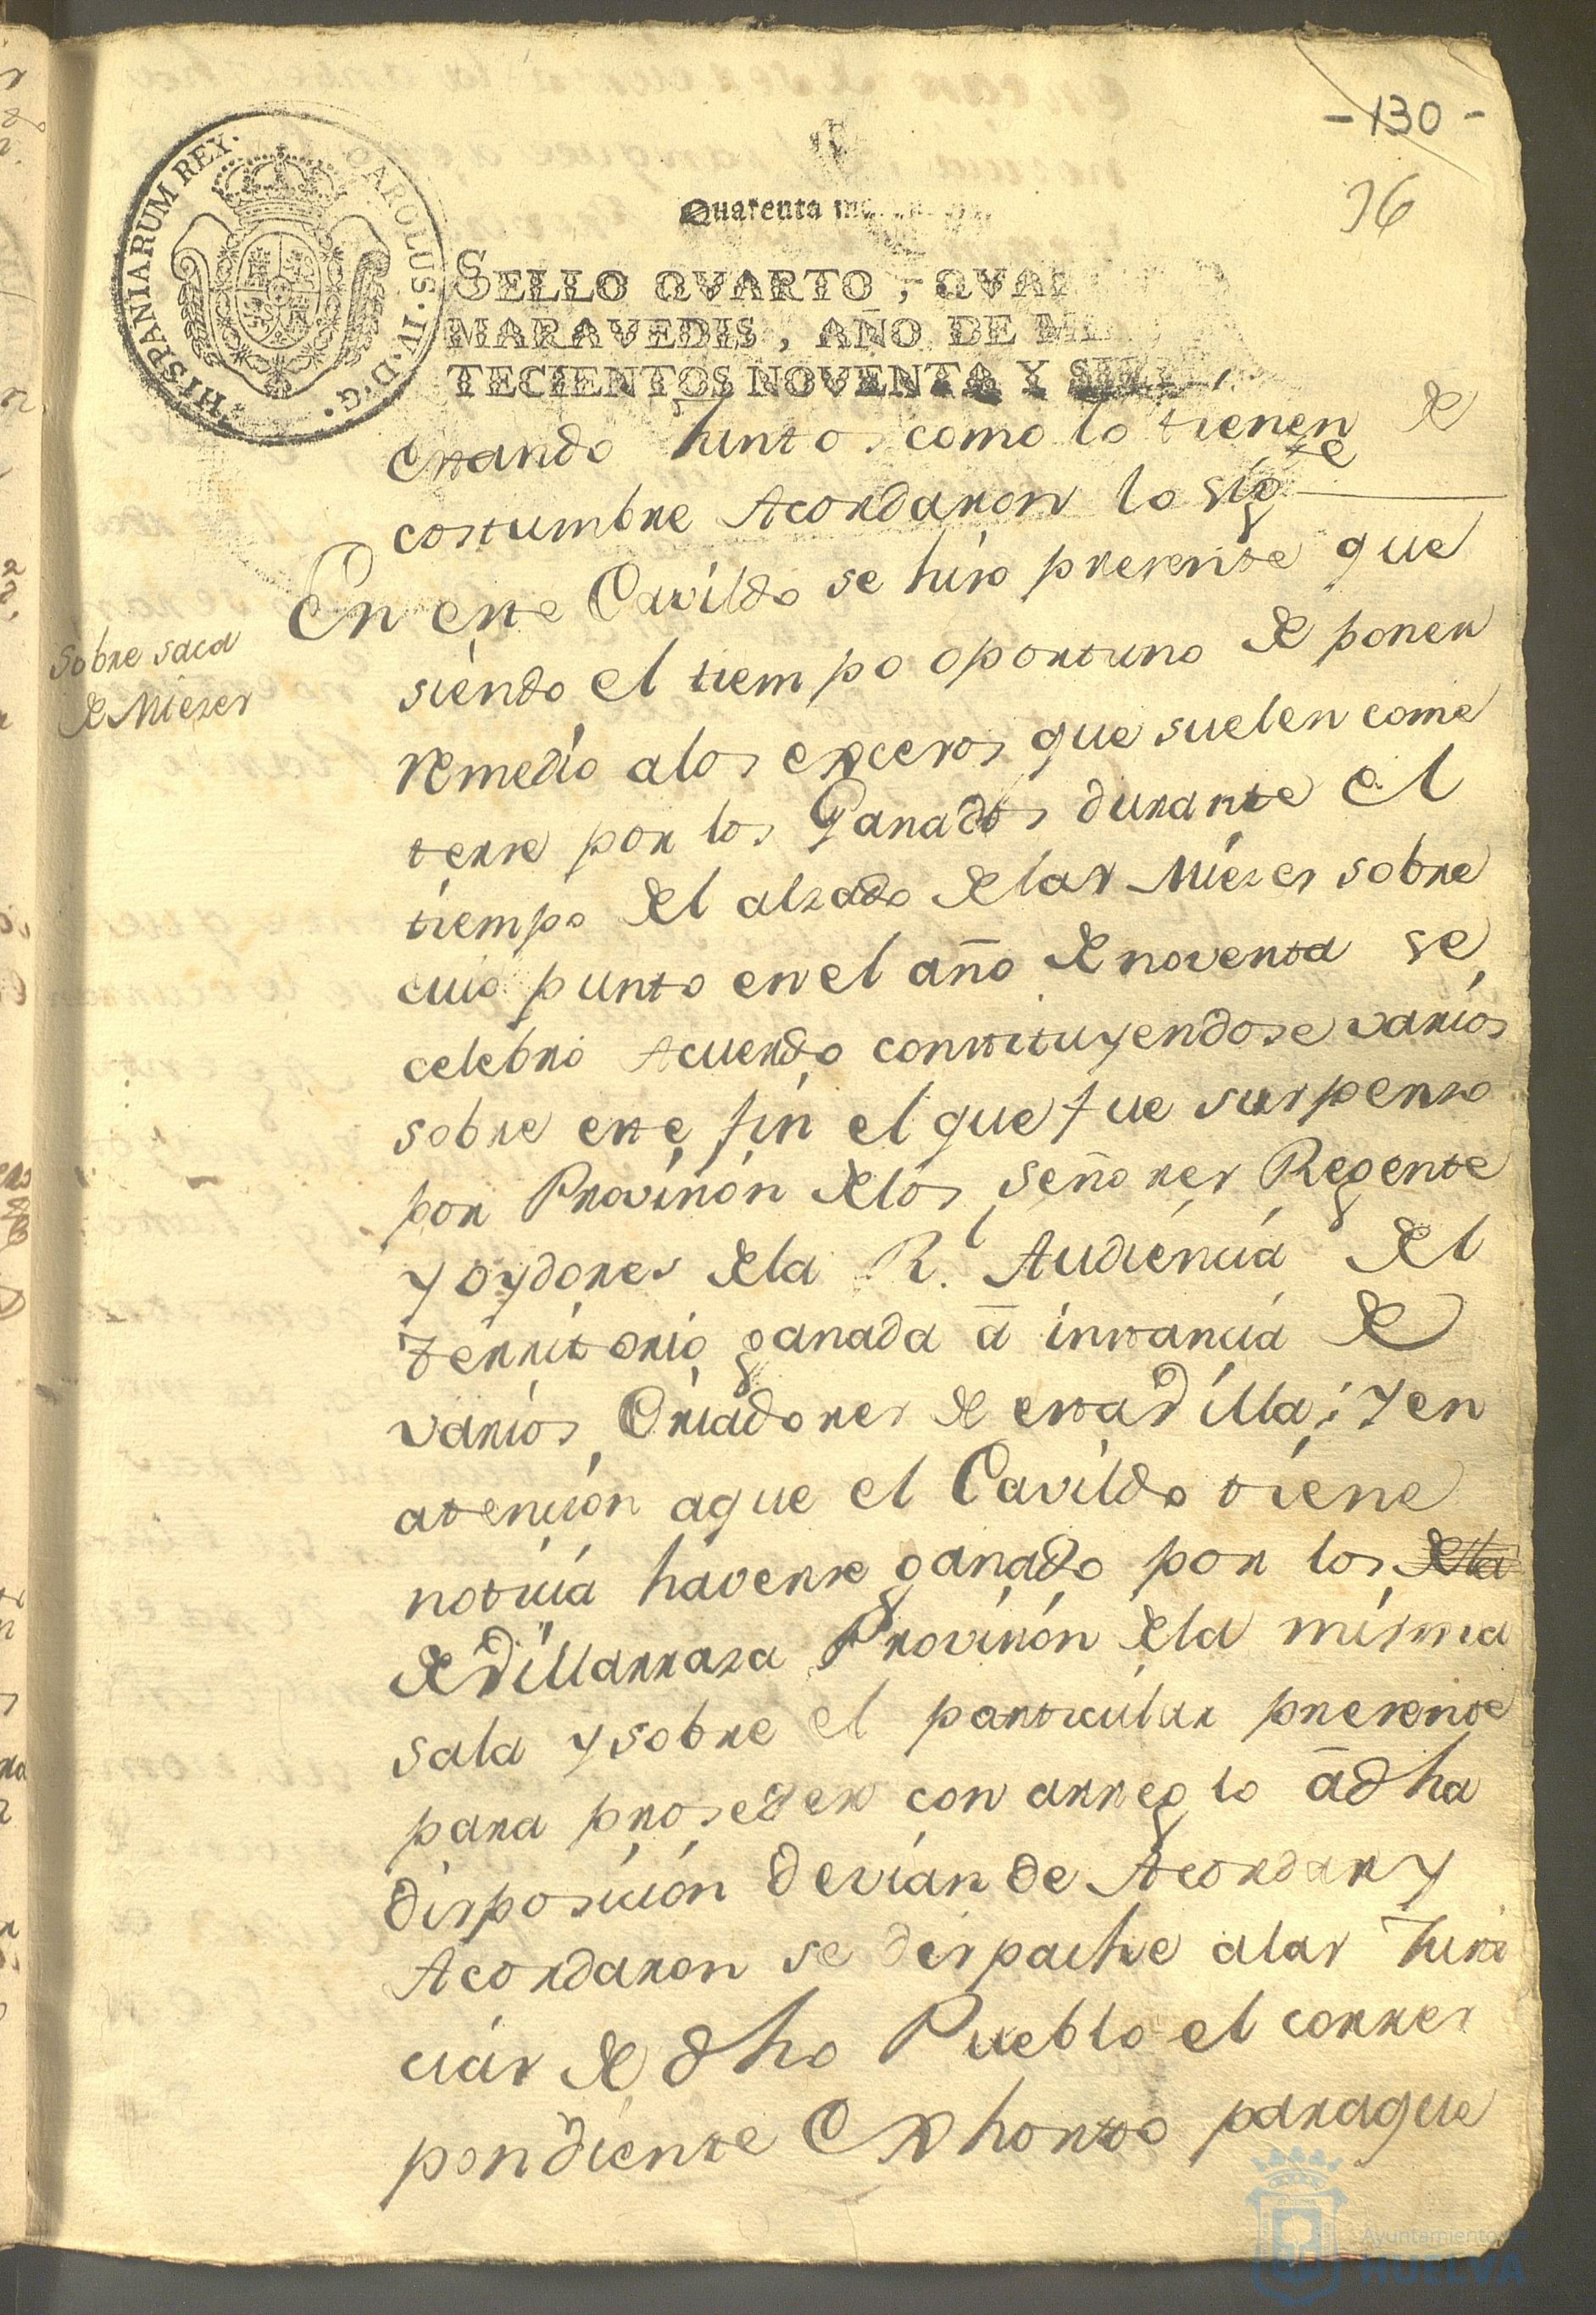 -130-
36
HISPANIARUM REX.
CAROLUS·IV·D·G·
Quarenta
SELLO QVARTO, QVAR
MARAVEDIS, AÑO DE MI
TECIENTOS NOVENTA Y SIETE
estando Juntos como lo tienen de
costumbre Acordaron lo sigte
sobre saca
de Miezes
En este Cavildo se hiso presente que
siendo el tiempo oportuno de poner
remedio alos excesos que suelen come
terse por los Ganados durante el
tiempo del alzado delas Miezes sobre
cuio punto en el año de noventa se
celebró Acuerdo constituyendose varios
sobre este fin el que fue suspenso
por Provision delos señores Regente
y oydores dela Rl. Audiencia del
territorio ganada â instancia de
varios Criadores de esta Villa; y en
atencion aque el Cavildo tiene
noticia haverse ganado por los dela
de Villarrasa Provision dela misma
sala y sobre el particular presente
para proseder con arreglo âdha
disposicion devian de Acordar y
Acordaron se despache alas Justi
cias de dho Pueblo el corres
pondiente Exhorto paraque
Ayuntamiento de
HUELVA